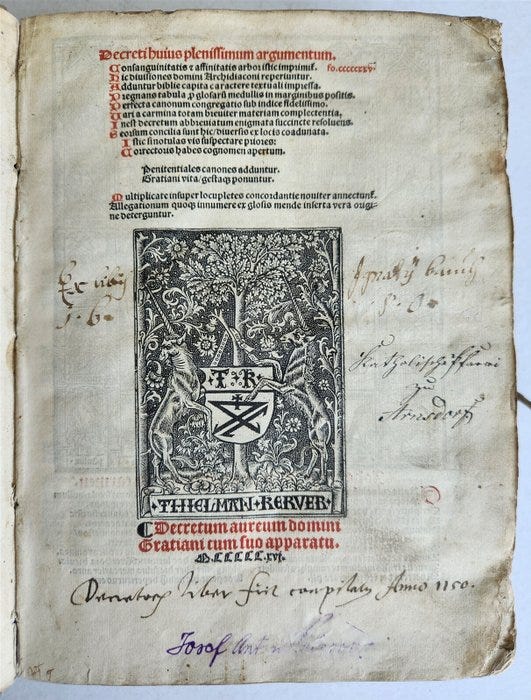 Decreti huius plenissimum argumentum.
Consanguinitatis & affinitatis arbor istic imprimit̃. fo.cccccxxv.
Hic diuisiones domini Archidiaconi reperiuntur.
Adduntur biblie capita caractere textuali impressa.
Pregnans tabula, p̱ glosarũ medullis in marginibus positis.
Perfecta canonum congregatio sub indice fidelissimo.
Dari a carmina totam breuiter materiam complectentia,
Inest decretum abbreuiatum enigmata succincte resoluens.
Seorsum concilia sunt hic/diuersis ex locis coadunata.
Istic si notulas vis suspectare priores:
Correctoris habes cognomen apertum.
Penitentiales canones adduntur.
Gratiani vita/gestaq̃ ponuntur.
Multiplicate insuper locupletes concordantie nouiter annectunt̃.
Allegationum quoq̃ innumere ex glosis mende inserta vera origine
deterguntur.
Ex
Katholische Pfarrei
zu
Arnsdorf
T K
THIELMAN KERVER
Decretum aureum domini
Gratiani cum suo apparatu.
M.CCCCC.xvi.
Liber fuit Anno 1150.
Josef